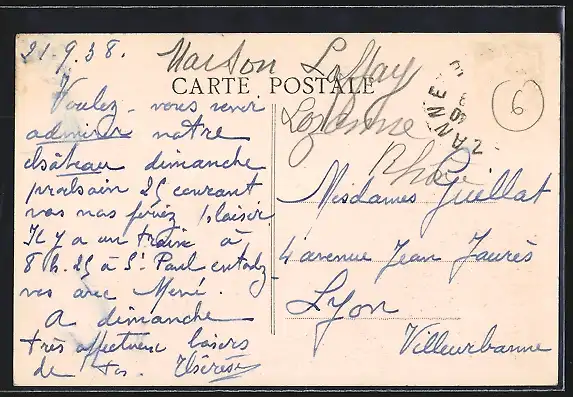 21.9.38.
Maison Laffay
CARTE POSTALE
Lozanne
Rhône
6
ANNE
Voulez-vous venir
admirer notre
château dimanche
prochain 25 courant
vous nous feriez plaisir
Il y a un train à
8 h. 25 à St Paul entendez-
vous avec Mémé.
A dimanche
très affectueux baisers
de tos. Thérèse
Mesdames Guillat
4 avenue Jean Jaurès
Lyon
Villeurbanne